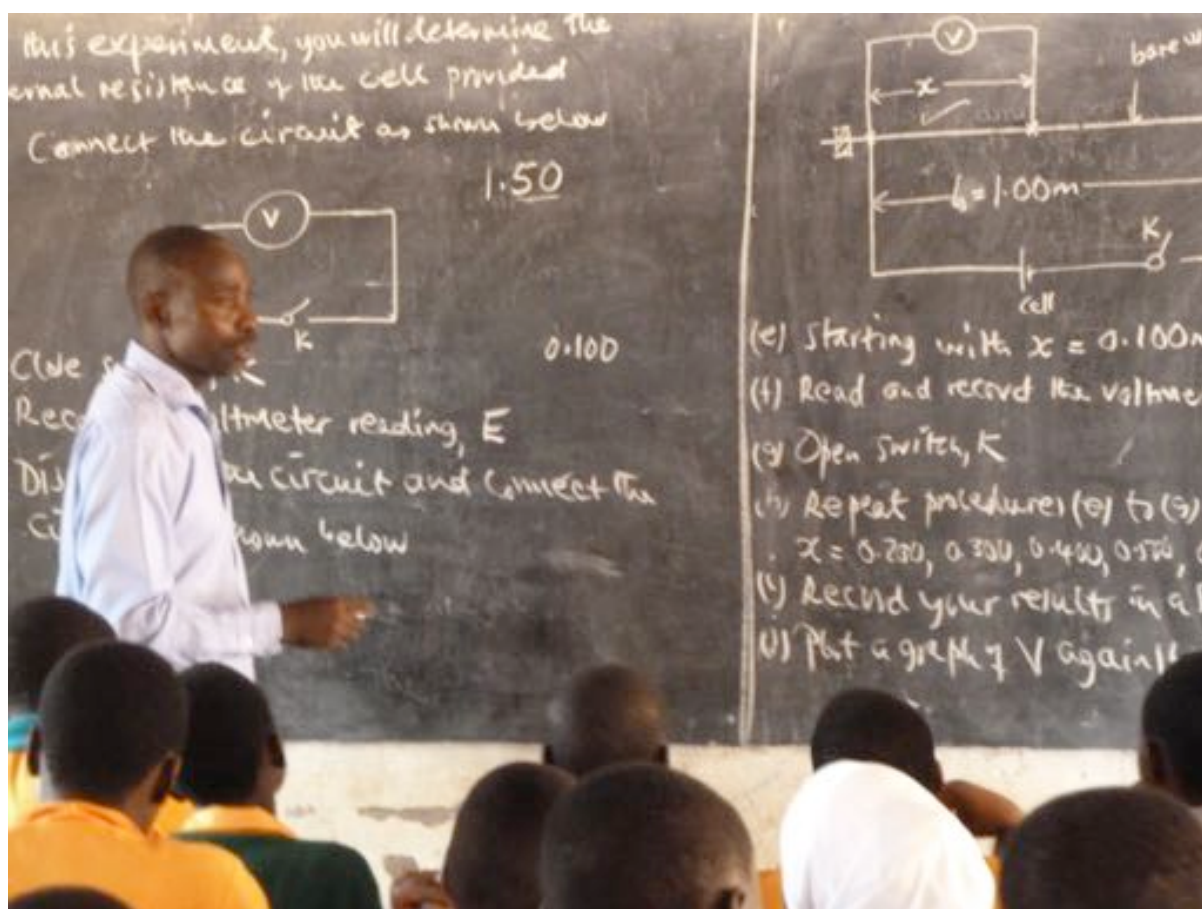 this experiment, you will determine the
ernal resistance of the cell provided
Connect the circuit as shown below
1.50
V
K
0.100
Close K
Rec ltmeter reading, E
Dis circuit and connect the
ci hown below
V
x
bare w
= 1.00m
K
cell
(e) Starting with x = 0.100m
(f) Read and record the voltme
(g) Open switch, K
(h) Repeat procedures (e) to (g)
x = 0.200, 0.300, 0.400, 0.500,
(i) Record your results in a
(j) Plot a graph of V against